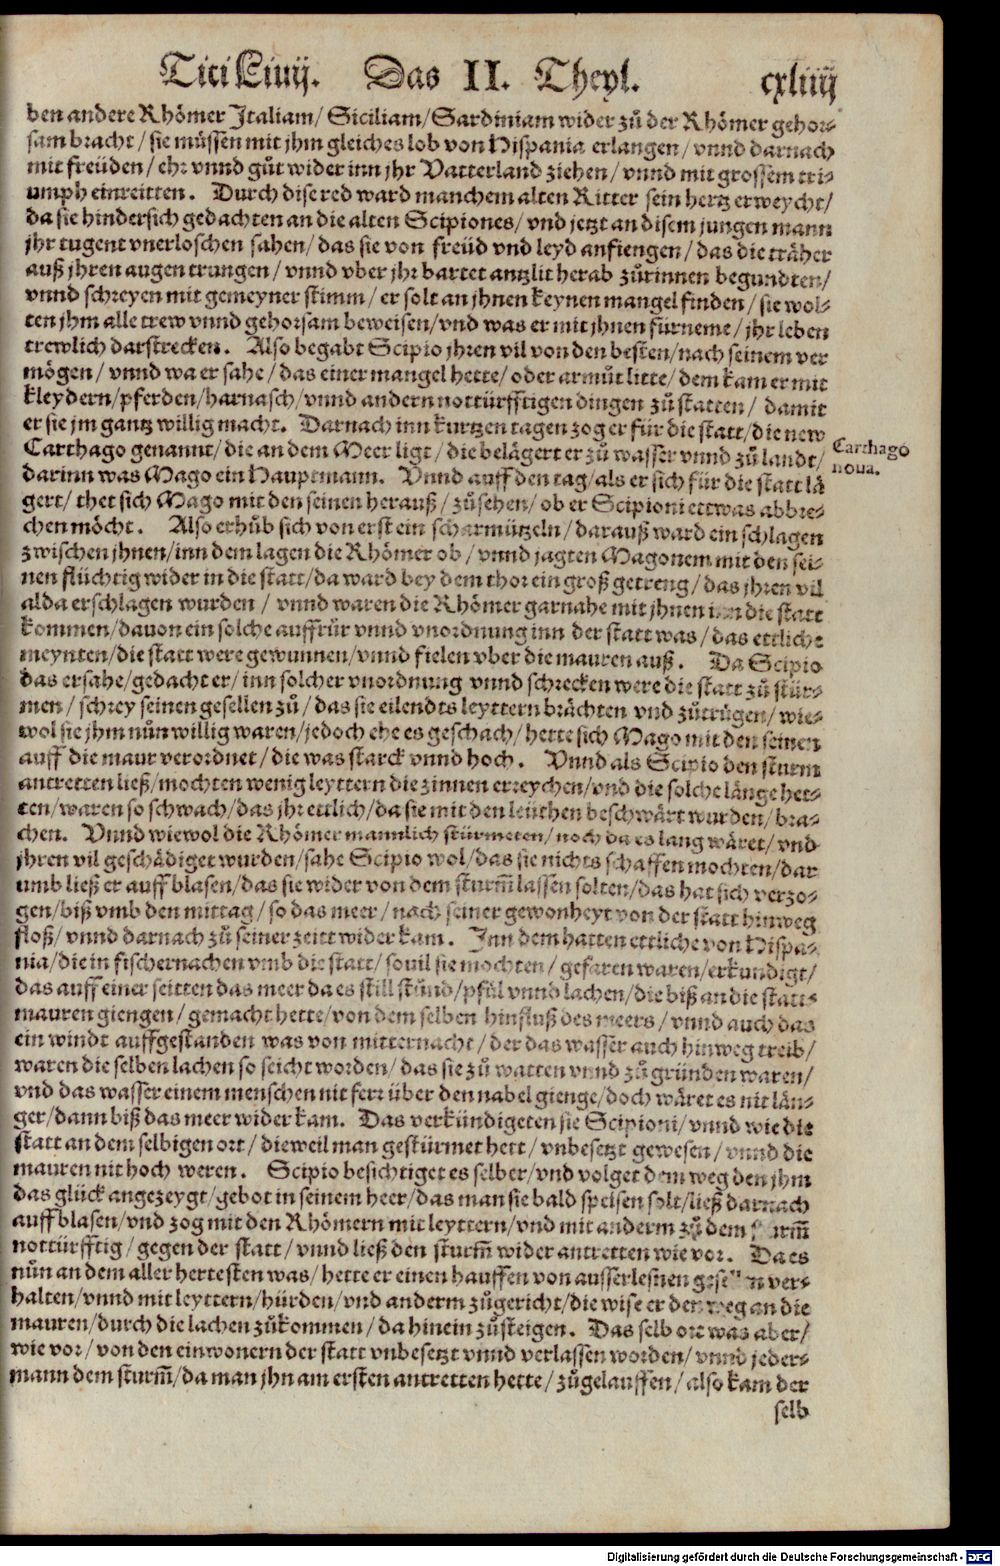 Titi Liuij. Das II. Theyl. cxliiij
ben andere Rhömer Italiam/ Siciliam/ Sardiniam wider zů der Rhömer gehor-
sam bracht/ sie müssen mit jhm gleiches lob von Hispania erlangen/ vnnd darnach
mit freüden/ ehr vnnd gůt wider inn jhr Vatterland ziehen/ vnnd mit grossem tri-
umph einreitten. Durch dise red ward manchem alten Ritter sein hertz erweycht/
da sie hindersich gedachten an die alten Scipiones/ vnd jetzt an disem jungen mann
jhr tugent vnerloschen sahen/ das sie von freüd vnd leyd anfiengen/ das die träher
auß jhren augen trungen/ vnnd vber jhr bartet antzlit herab zůrinnen begundten/
vnnd schreyen mit gemeyner stimm/ er solt an jhnen keynen mangel finden/ sie wol-
ten jhm alle trew vnnd gehorsam beweisen/ vnd was er mit jhnen fürneme/ jhr leben
trewlich darstrecken. Also begabt Scipio jhren vil von den besten/ nach seinem ver
mögen/ vnnd wa er sahe/ das einer mangel hette/ oder armůt litte/ dem kam er mit
kleydern/ pferden/ harnasch/ vnnd andern nottürfftigen dingen zů statten/ damit
er sie jm gantz willig macht. Darnach inn kurtzen tagen zog er für die statt/ die new
Carthago genannt/ die an dem Meer ligt/ die belägert er zů wasser vnnd zů landt/
Carthago
noua.
darinn was Mago ein Hauptmann. Vnnd auff den tag/ als er sich für die statt lä
gert/ thet sich Mago mit den seinen herauß/ zůsehen/ ob er Scipioni ettwas abbre-
chen möcht. Also erhůb sich von erst ein scharmützeln/ darauß ward ein schlagen
zwischen jhnen/ inn dem lagen die Rhömer ob/ vnnd jagten Magonem mit den sei-
nen flüchtig wider in die statt/ da ward bey dem thor ein groß getreng/ das jhren vil
alda erschlagen wurden/ vnnd waren die Rhömer garnahe mit jhnen inn die statt
kommen/ dauon ein solche auffrůr vnnd vnordnung inn der statt was/ das ettliche
meynten/ die statt were gewunnen/ vnnd fielen vber die mauren auß. Da Scipio
das ersahe/ gedacht er/ inn solcher vnordnung vnnd schrecken were die statt zů stür-
men/ schrey seinen gesellen zů/ das sie eilendts leyttern brächten vnd zůtrügen/ wie-
wol sie jhm nůn willig waren/ jedoch ehe es geschach/ hette sich Mago mit den seinen
auff die maur verordnet/ die was starck vnnd hoch. Vnnd als Scipio den sturm
antretten ließ/ mochten wenig leyttern die zinnen erreychen/ vnd die solche länge het-
ten/ waren so schwach/ das jhr ettlich/ da sie mit den leüthen beschwärt wurden/ bra-
chen. Vnnd wiewol die Rhömer mannlich stürmeten/ noch da es lang wäret/ vnd
jhren vil geschädiget wurden/ sahe Scipio wol/ das sie nichts schaffen mochten/ dar
umb ließ er auff blasen/ das sie wider von dem sturm̄ lassen solten/ das hat sich verzo-
gen/ biß vmb den mittag/ so das meer/ nach seiner gewonheyt von der statt hinweg
floß/ vnnd darnach zů seiner zeitt wider kam. Inn dem hatten ettliche von Hispa-
nia/ die in fischernachen vmb die statt/ souil sie mochten/ gefaren waren/ erkundigt/
das auff einer seitten das meer da es still stůnd/ pfůl vnnd lachen/ die biß an die statt-
mauren giengen/ gemacht hette/ von dem selben hinfluß des meers/ vnnd auch das
ein windt auffgestanden was von mitternacht/ der das wasser auch hinweg treib/
waren die selben lachen so seicht worden/ das sie zů watten vnnd zů gründen waren/
vnd das wasser einem menschen nit ferr über den nabel gienge/ doch wäret es nit län-
ger/ dann biß das meer wider kam. Das verkündigeten sie Scipioni/ vnnd wie die
statt an dem selbigen ort/ dieweil man gestürmet hett/ vnbesetzt gewesen/ vnnd die
mauren nit hoch weren. Scipio besichtiget es selber/ vnd volget dem weg den jhm
das glück angezeygt/ gebot in seinem heer/ das man sie bald speisen solt/ ließ darnach
auff blasen/ vnd zog mit den Rhömern mit leyttern/ vnd mit anderm zů dem sturm̄
nottürfftig/ gegen der statt/ vnnd ließ den sturm̄ wider antretten wie vor. Da es
nůn an dem aller hertesten was/ hette er einen hauffen von ausserlesnen gesellen ver-
halten/ vnnd mit leyttern/ hürden/ vnd anderm zůgericht/ die wise er den weg an die
mauren/ durch die lachen zůkommen/ da hinein zůsteigen. Das selb ort was aber/
wie vor/ von den einwonern der statt vnbesetzt vnnd verlassen worden/ vnnd jeder-
mann dem sturm̄/ da man jhn am ersten antretten hette/ zůgelauffen/ also kam der
selb
Digitalisierung gefördert durch die Deutsche Forschungsgemeinschaft - DFG